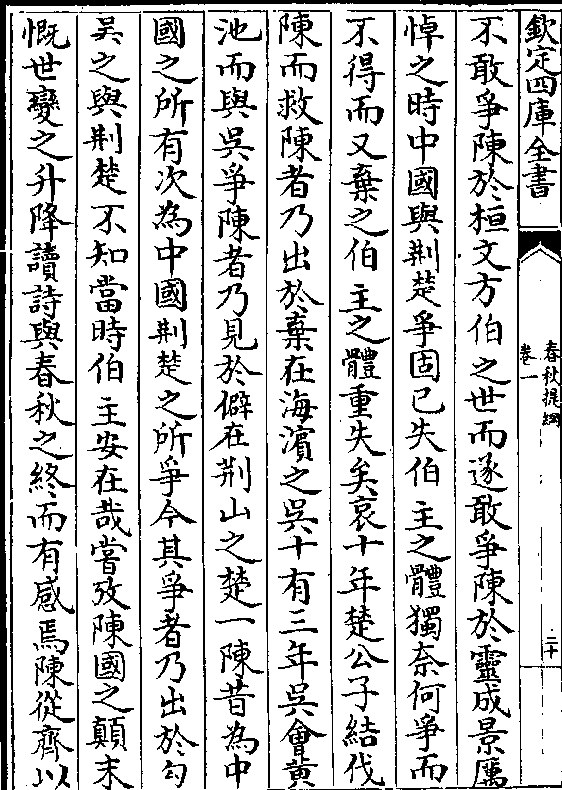 欽定四庫全書
春秋提綱
卷一
二十
不敢爭陳於桓文方伯之世而遂敢爭陳於靈成景厲
悼之時中國與荆楚爭固已失伯主之體獨奈何爭而
不得而又棄之伯主之體重失矣哀十年楚公子結伐
陳而救陳者乃出於棄在海濱之吳十有三年吳會黄
池而與吳爭陳者乃見於僻在荆山之楚一陳昔為中
國之所有次為中國荆楚之所爭今其爭者乃出於勾
吳之與荆楚不知當時伯主安在哉嘗攷陳國之顛末
慨世變之升降讀詩與春秋之終而有感焉陳從齊以